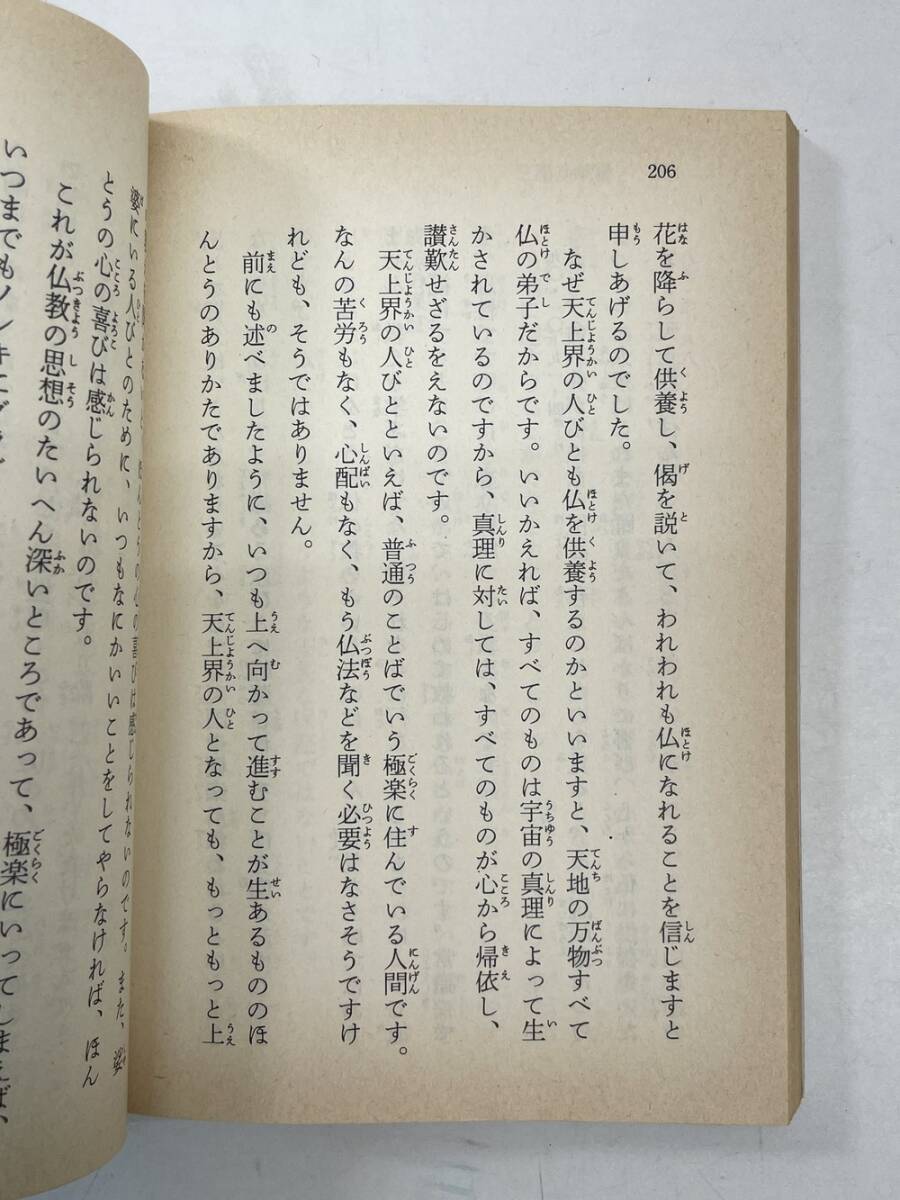 206
花を降らして供養し、偈を説いて、われわれも仏になれることを信じますと
申しあげるのでした。
なぜ天上界の人びとも仏を供養するのかといいますと、天地の万物すべて
仏の弟子だからです。いいかえれば、すべてのものは宇宙の真理によって生
かされているのですから、真理に対しては、すべてのものが心から帰依し、
讃歎せざるをえないのです。
天上界の人びとといえば、普通のことばでいう極楽に住んでいる人間です。
なんの苦労もなく、心配もなく、もう仏法などを聞く必要はなさそうですけ
れども、そうではありません。
前にも述べましたように、いつも上へ向かって進むことが生あるもののほ
んとうのありかたでありますから、天上界の人となっても、もっともっと上
の喜びは感じられないのです。また、娑
婆にいる人びとのために、いつもなにかいいことをしてやらなければ、ほん
とうの心の喜びは感じられないのです。
これが仏教の思想のたいへん深いところであって、極楽にいってしまえば、
いつまでもノンキに